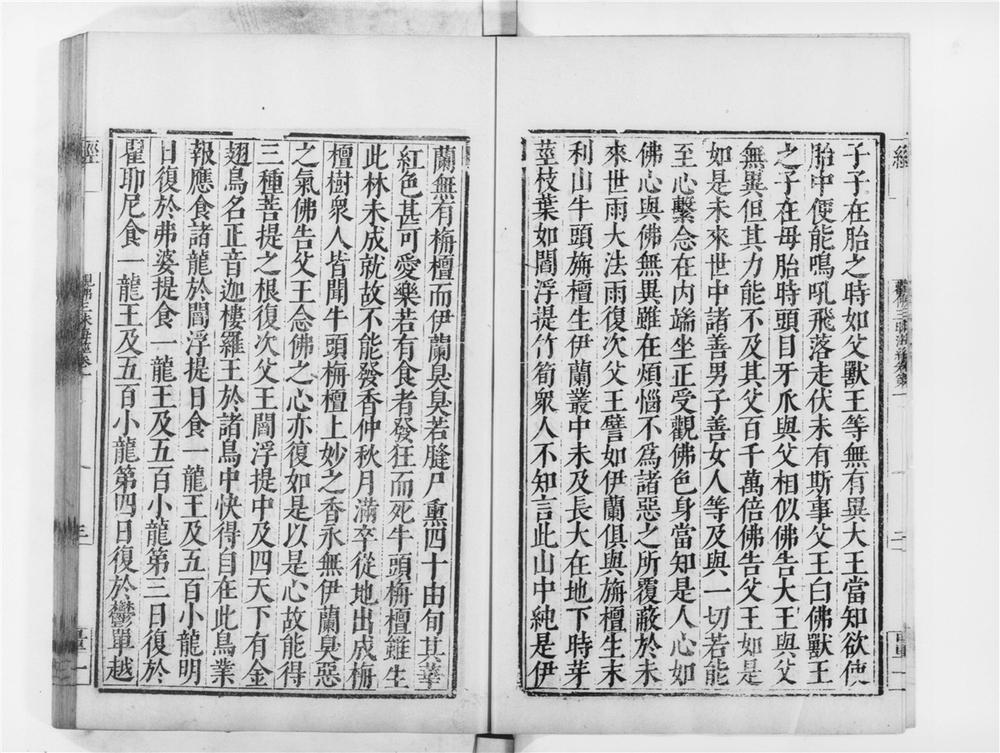 子子在胎之時如父獸王等無有異大王當知欲使
胎中便能鳴吼飛落走伏未有斯事父王白佛獸王
之子在母胎時頭目牙爪與父相似佛告大王與父
無異但其力能不及其父百千萬倍佛告父王如是
如是未來世中諸善男子善女人等及與一切若能
至心繫念在內端坐正受觀佛色身當知是人心如
佛心與佛無異雖在煩惱不爲諸惡之所覆蔽於未
來世雨大法雨復次父王譬如伊蘭俱與旃檀生末
利山牛頭旃檀生伊蘭叢中未及長大在地下時芽
莖枝葉如閻浮提竹筍衆人不知言此山中純是伊
蘭無有栴檀而伊蘭臭臭若膖尸熏四十由旬其華
紅色甚可愛樂若有食者發狂而死牛頭栴檀雖生
此林未成就故不能發香仲秋月滿卒從地出成栴
檀樹衆人皆聞牛頭栴檀上妙之香永無伊蘭臭惡
之氣佛告父王念佛之心亦復如是以是心故能得
三種菩提之根復次父王閻浮提中及四天下有金
翅鳥名正音迦樓羅王於諸鳥中快得自在此鳥業
報應食諸龍於閻浮提日食一龍王及五百小龍明
日復於弗婆提食一龍王及五百小龍第三日復於
瞿耶尼食一龍王及五百小龍第四日復於鬱單越
經
觀佛三昧海經卷一
三